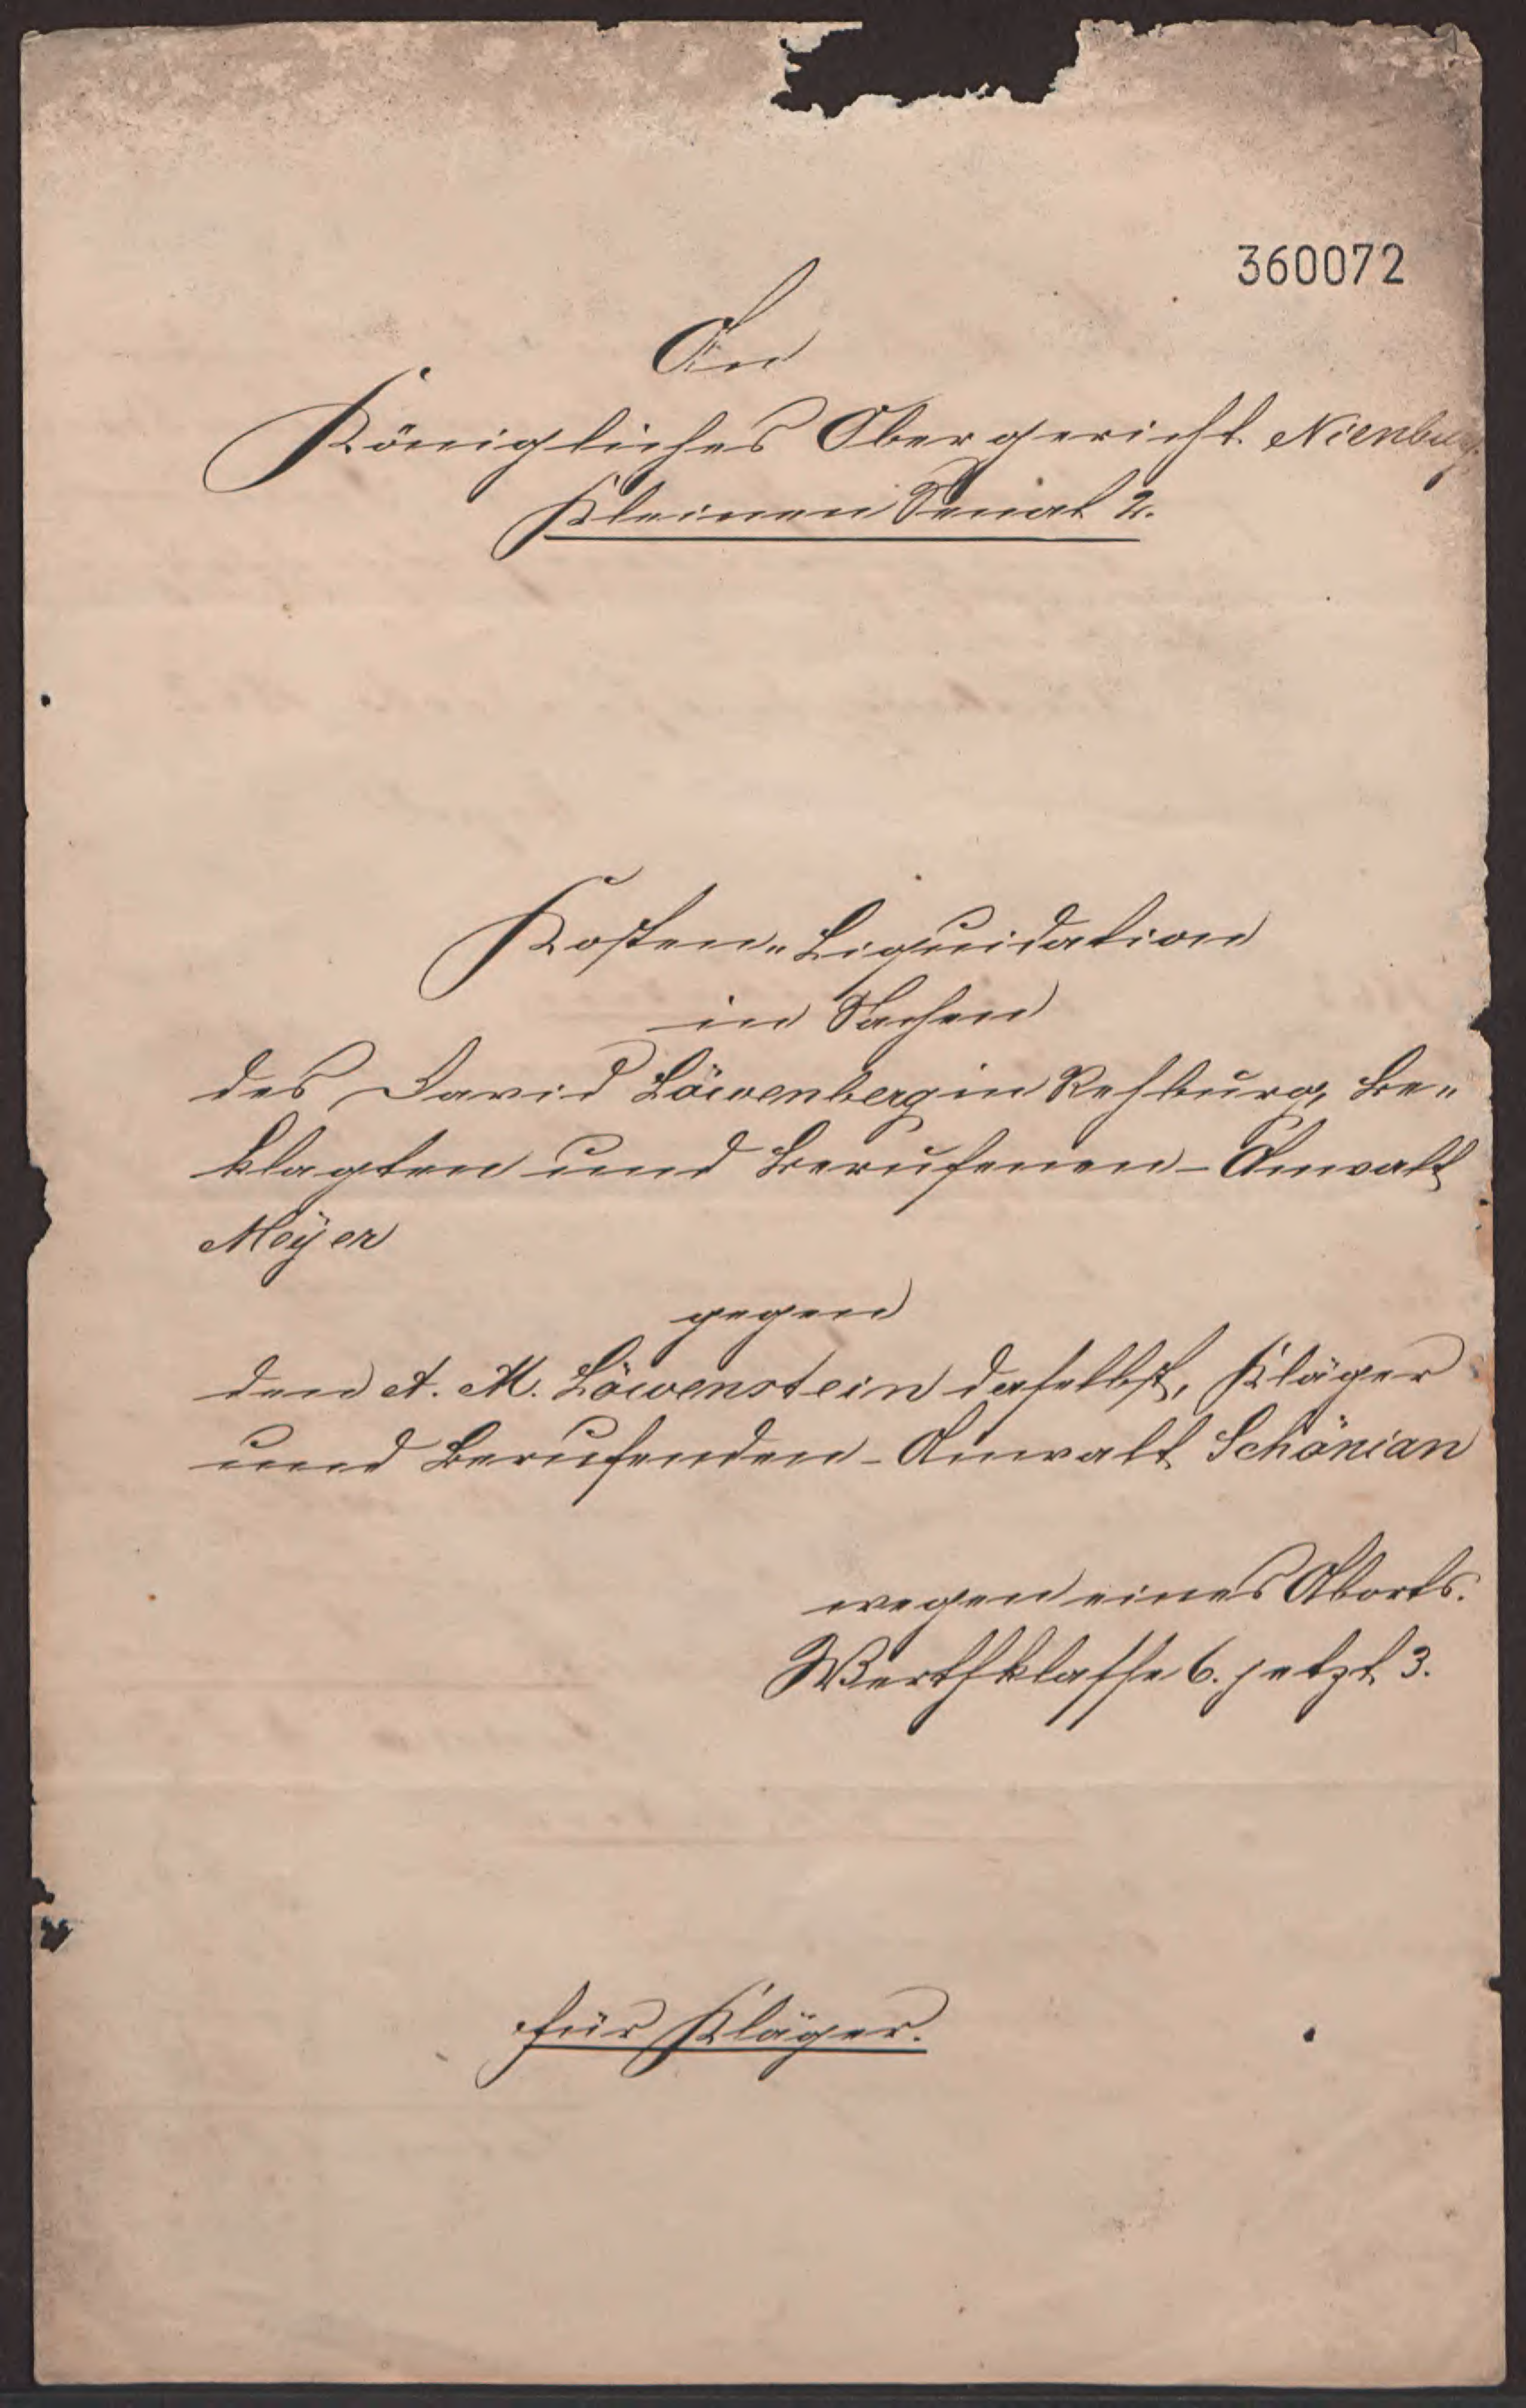 360072
An
Königliches Obergericht Nienburg.
Kleinen Senat 2.
Kosten-Liquidation
in Sachen
des David Löwenberg in Rehburg, Be-
klagten und Berufenen - Anwalt
Meÿer
gegen
den A. M. Löwenstein daselbst, Kläger
und Berufenden - Anwalt Schönian
wegen eines Aborts.
Werthklasse 6. jetzt 3.
für Kläger.